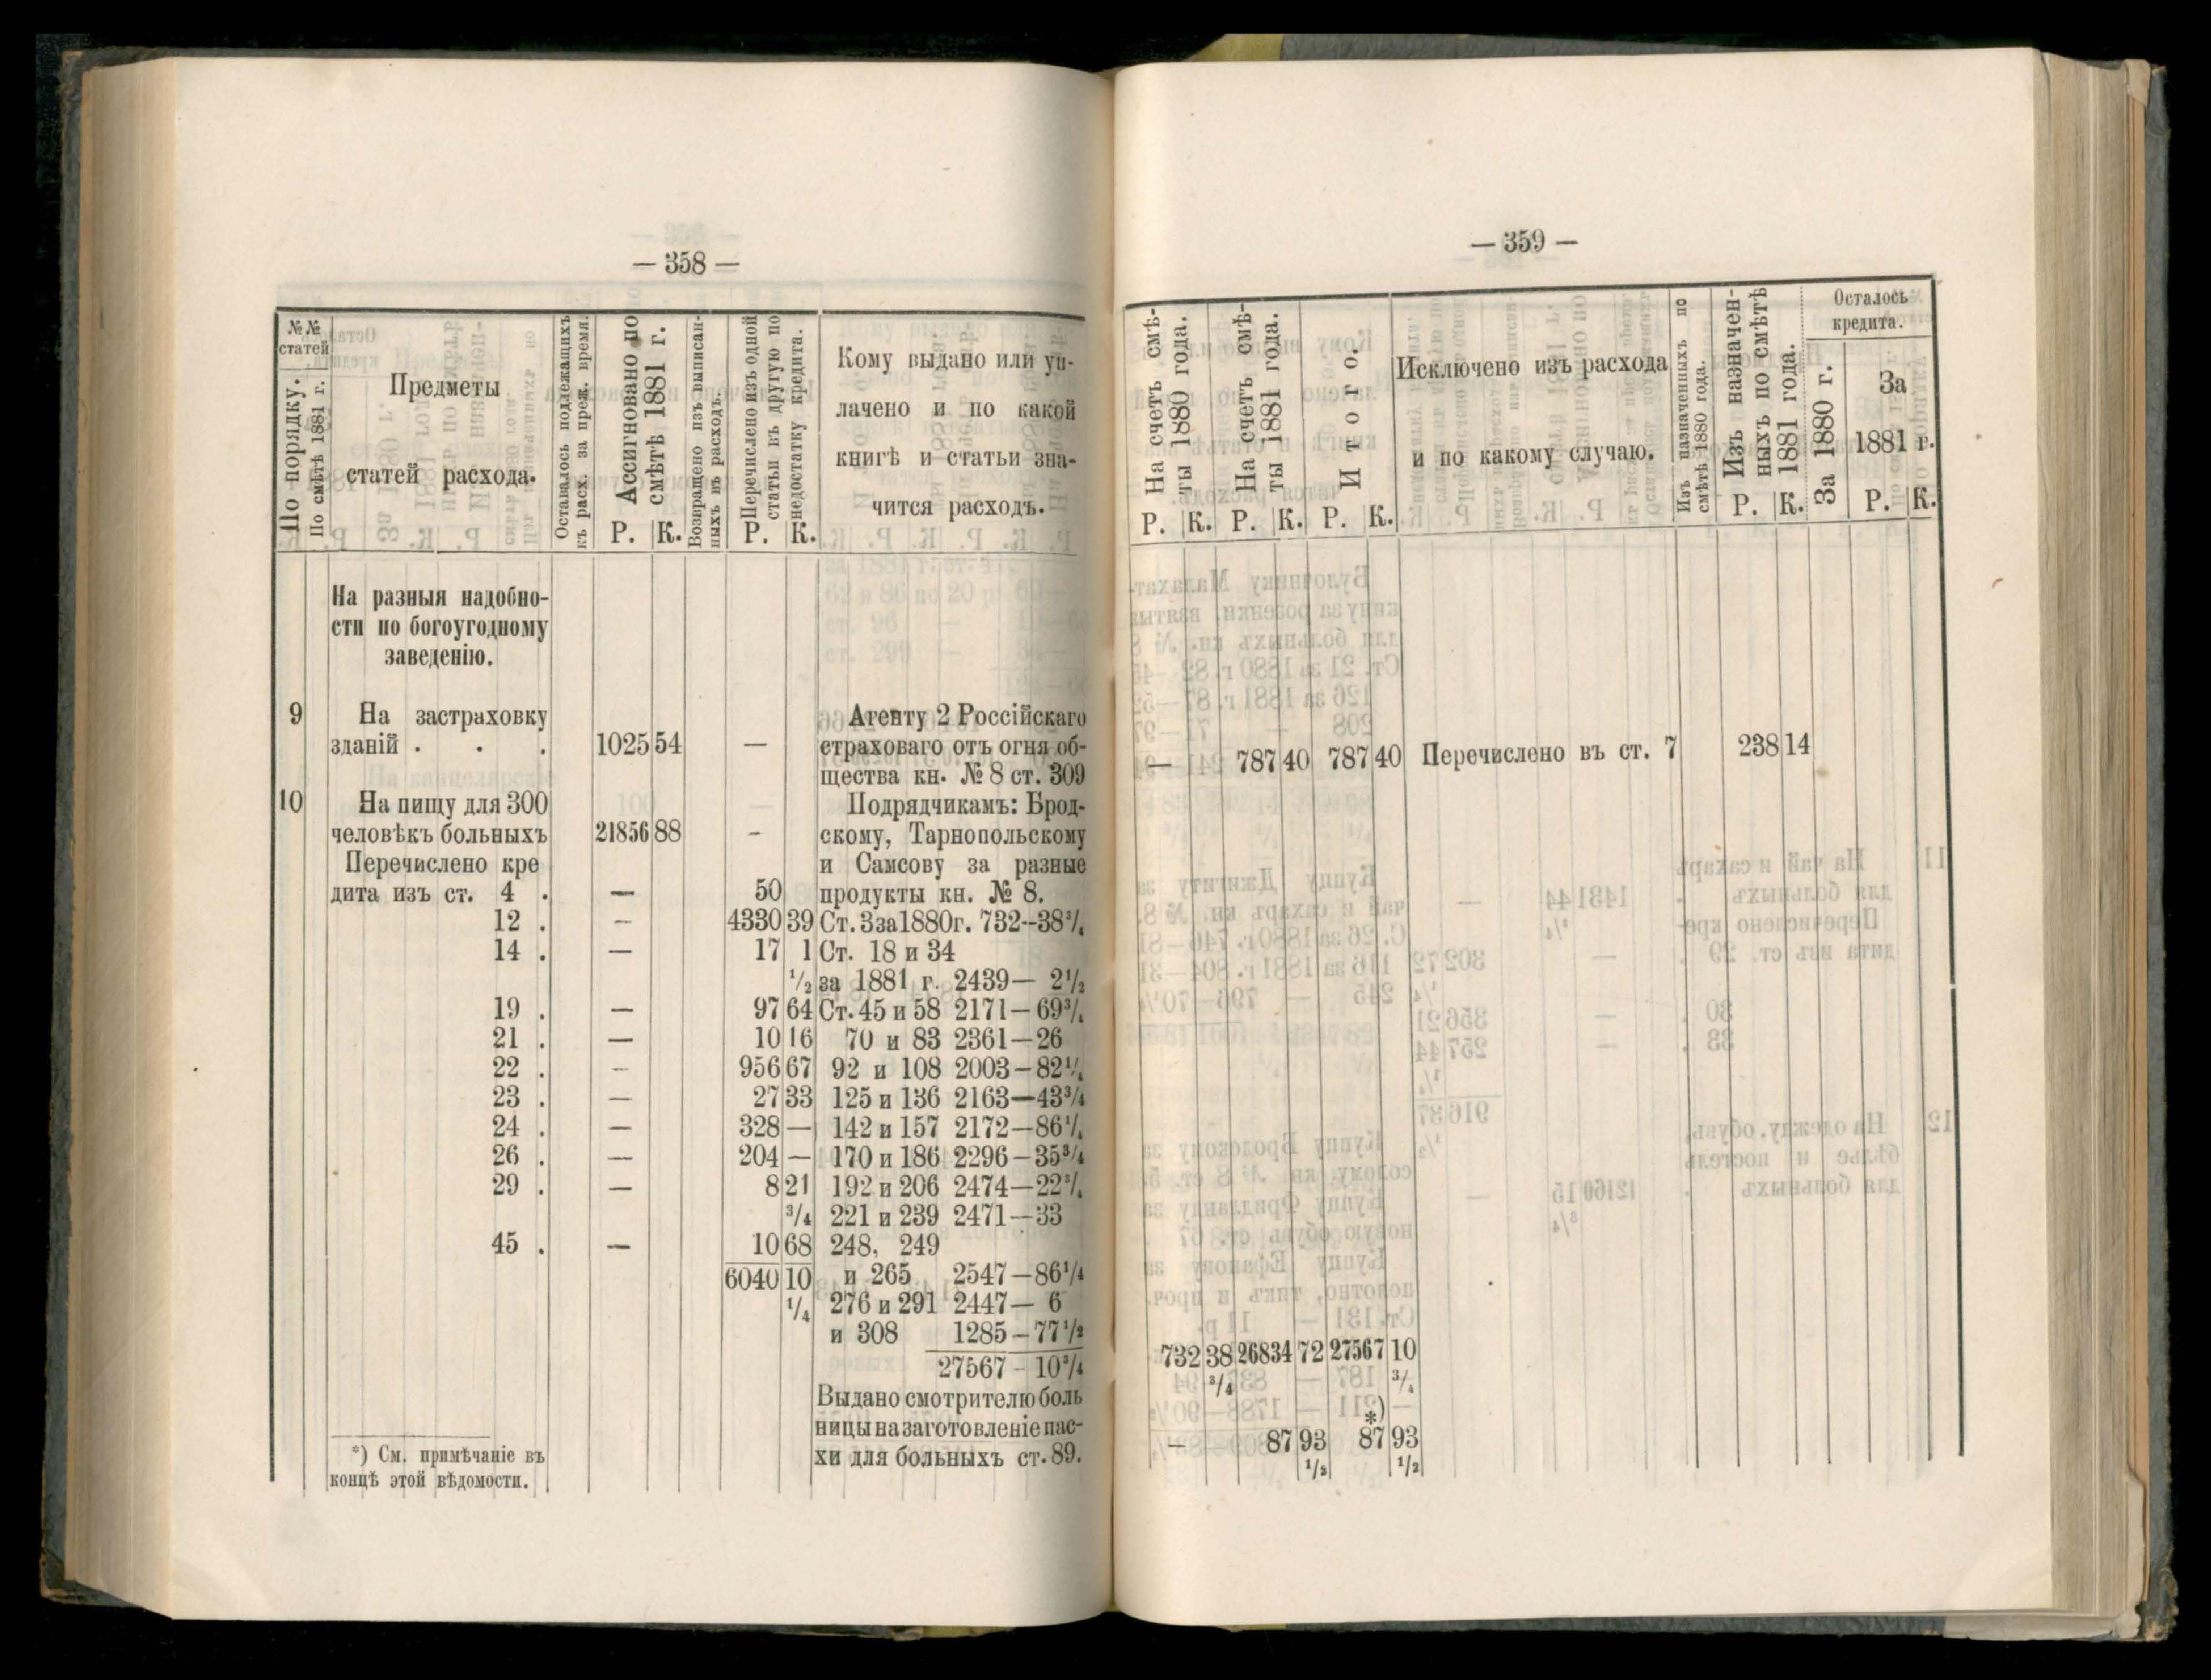 — 358 —
№№ статей
По порядку.
По смѣтѣ 1881 г.
Предметы
статей расхода.
Оставалось подлежащихъ
къ расх. за преж. время.
Ассигновано по
смѣтѣ 1881 г.
Р. К.
Возвращено изъ выписан-
ныхъ въ расходъ.
Перечислено изъ одной
статьи въ другую по
недостатку кредита.
Р. К.
Кому выдано или уп-
лачено и по какой
книгѣ и статьи зна-
чится расходъ.
На разныя надобно-
сти по богоугодному
заведенію.
9 На застраховку Агенту 2 Россійскаго
зданій . . . 1025 54 — страховаго отъ огня об-
щества кн. № 8 ст. 309
10 На пищу для 300 Подрядчикамъ: Брод-
человѣкъ больныхъ 21856 88 - скому, Тарнопольскому
Перечислено кре и Самсову за разные
дита изъ ст. 4 . — 50 продукты кн. № 8.
12 . — 4330 39 Ст. 3 за 1880г. 732--38¾
14 . — 17 1 Ст. 18 и 34
½ за 1881 г. 2439— 2½
19 . — 97 64 Ст. 45 и 58 2171—69¾
21 . — 10 16 70 и 83 2361—26
22 . — 956 67 92 и 108 2003—82¼
23 . — 27 33 125 и 136 2163—43¾
24 . — 328 — 142 и 157 2172—86¼
26 . — 204 — 170 и 186 2296—35¾
29 . — 8 21 192 и 206 2474—22¾
¾ 221 и 239 2471—33
45 . — 10 68 248, 249
6040 10 и 265 2547—86¼
¼ 276 и 291 2447— 6
и 308 1285—77½
27567—10¾
Выдано смотрителю боль
ницы на заготовленіе пас-
хи для больныхъ ст. 89.
*) См. примѣчаніе въ
концѣ этой вѣдомости.
— 359 —
На счетъ смѣ-
ты 1880 года.
Р. К.
На счетъ смѣ-
ты 1881 года.
Р. К.
Итого.
Р. К.
Исключено изъ расхода
и по какому случаю.
Изъ назначенныхъ по
смѣтѣ 1880 года.
Изъ назначен-
ныхъ по смѣтѣ
1881 года.
Р. К.
Осталось
кредита.
За 1880 г.
За
1881 г.
Р. К.
— 787 40 787 40 Перечислено въ ст. 7 238 14
732 38 26834 72 27567 10
¾ ¾
*)
— 87 93 87 93
½ ½